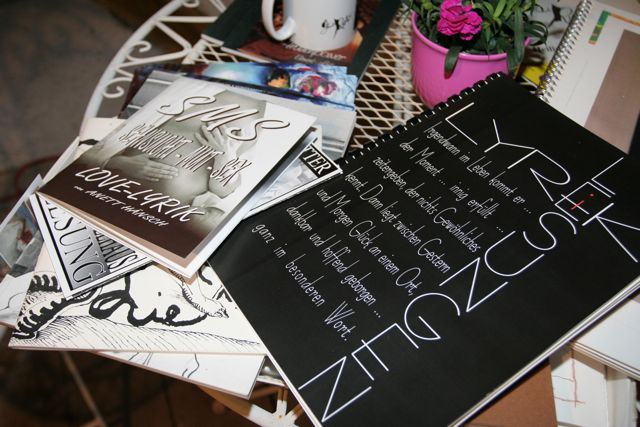 SMS
SEHNSUCHT · MIT · SEX
LOVE-LYRIK
von ANETT HÄNSCH
TER
ESUNG
LYRIK
LESUNGEN
Irgendwann im Leben kommt er ...
der Moment ... innig erfüllt ...
zeitengeben, der nichts Gewöhnliches
kennt. Dann liegt zwischen Gestern
und Morgen Glück an einem Ort,
dankbar und hoffend geborgen ...
ganz im besonderen Wort.